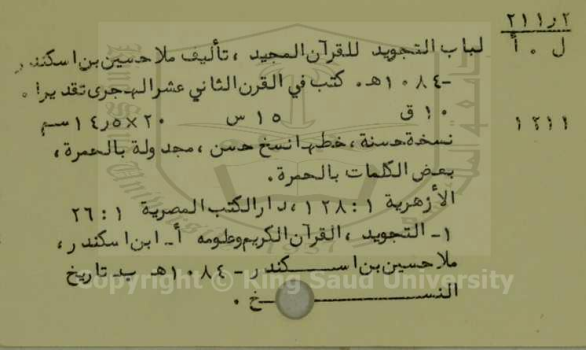 ٢١١٫٢
ل ٠ أ
لباب التجويد للقرآن المجيد ، تأليف ملا حسين بن اسكندر
-١٠٨٤هـ. كتب في القرن الثاني عشر الهجرى تقديرا .
١٠ ق ١٥ س ٢٠×١٤٫٥سم
١٢١١
نسخة حسنة ، خطها نسخ حسن ، مجدولة بالحمرة ،
بعض الكلمات بالحمرة .
الأزهرية ١ : ١٢٨ ، دار الكتب المصرية ١ : ٢٦
١- التجويد ، القرآن الكريم وعلومه أ- ابن اسكندر ،
ملا حسين بن اســـكندر - ١٠٨٤هـ ب- تاريخ
النســـــخ .
Copyright © King Saud University